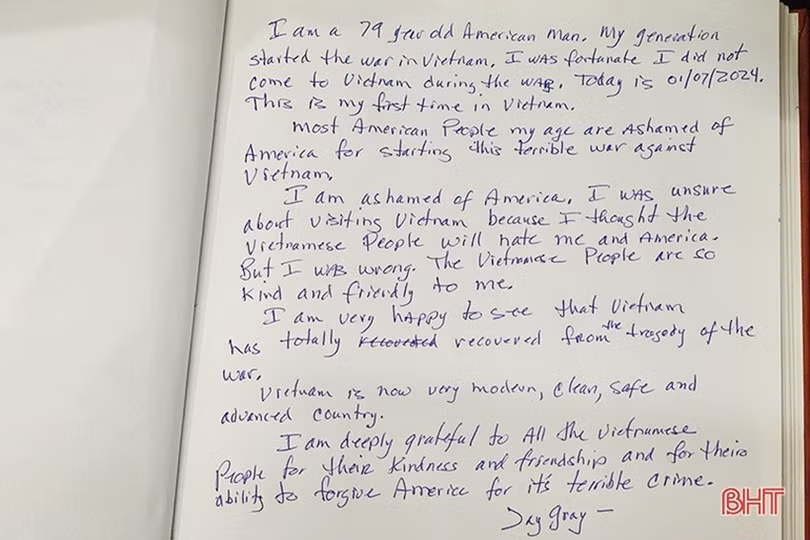 I am a 79 year old American man. My generation
started the war in Vietnam. I was fortunate I did not
come to Vietnam during the war. Today is 01/07/2024.
This is my first time in Vietnam.
Most American People my age are Ashamed of
America for starting this terrible war against
Vietnam.
I am ashamed of America. I was unsure
about visiting Vietnam because I thought the
Vietnamese People will hate me and America.
But I was wrong. The Vietnamese People are so
kind and friendly to me.
I am very happy to see that Vietnam
has totally recovered from the tragedy of the
war.
Vietnam is now very modern, clean, safe and
advanced country.
I am deeply grateful to All the Vietnamese
People for their kindness and friendship and for their
ability to forgive America for it's terrible crime.
Jay Gray -
BHT